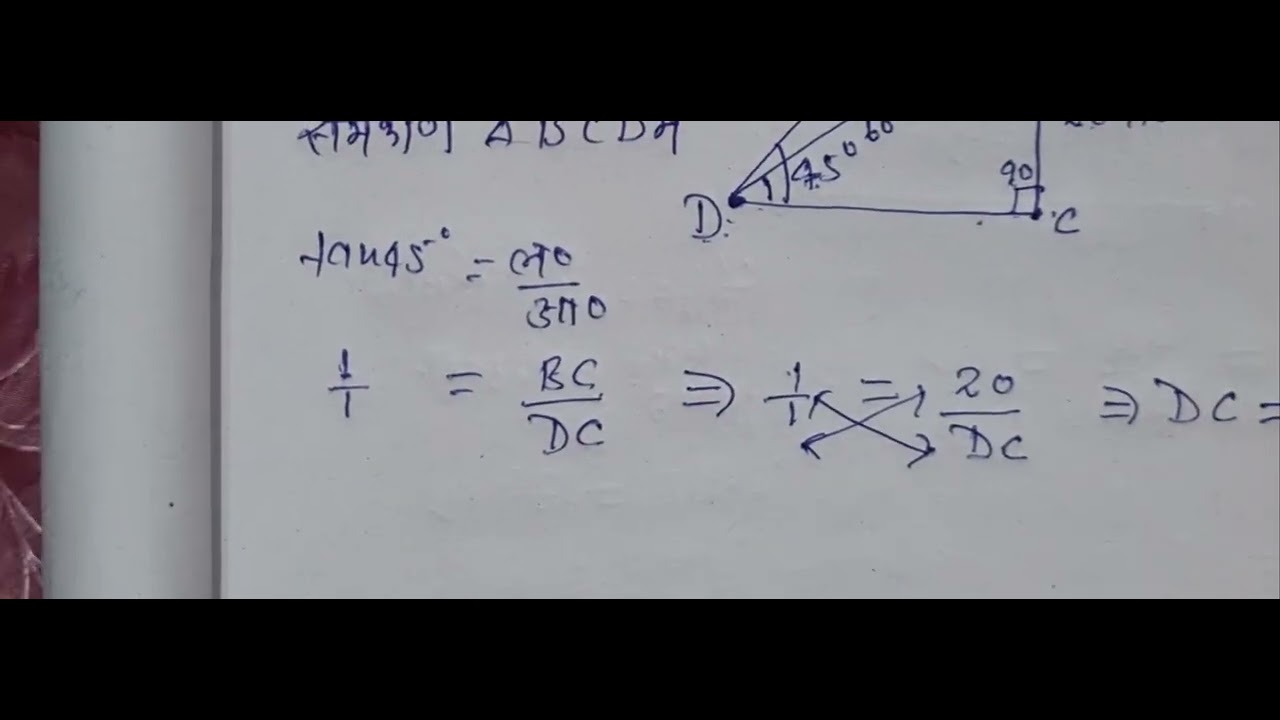 समकोण Δ BCD में
60
45°
90
D
C
tan45° = ल०
आ०
1/1 = BC/DC ⇒ 1/1 = 20/DC ⇒ DC =